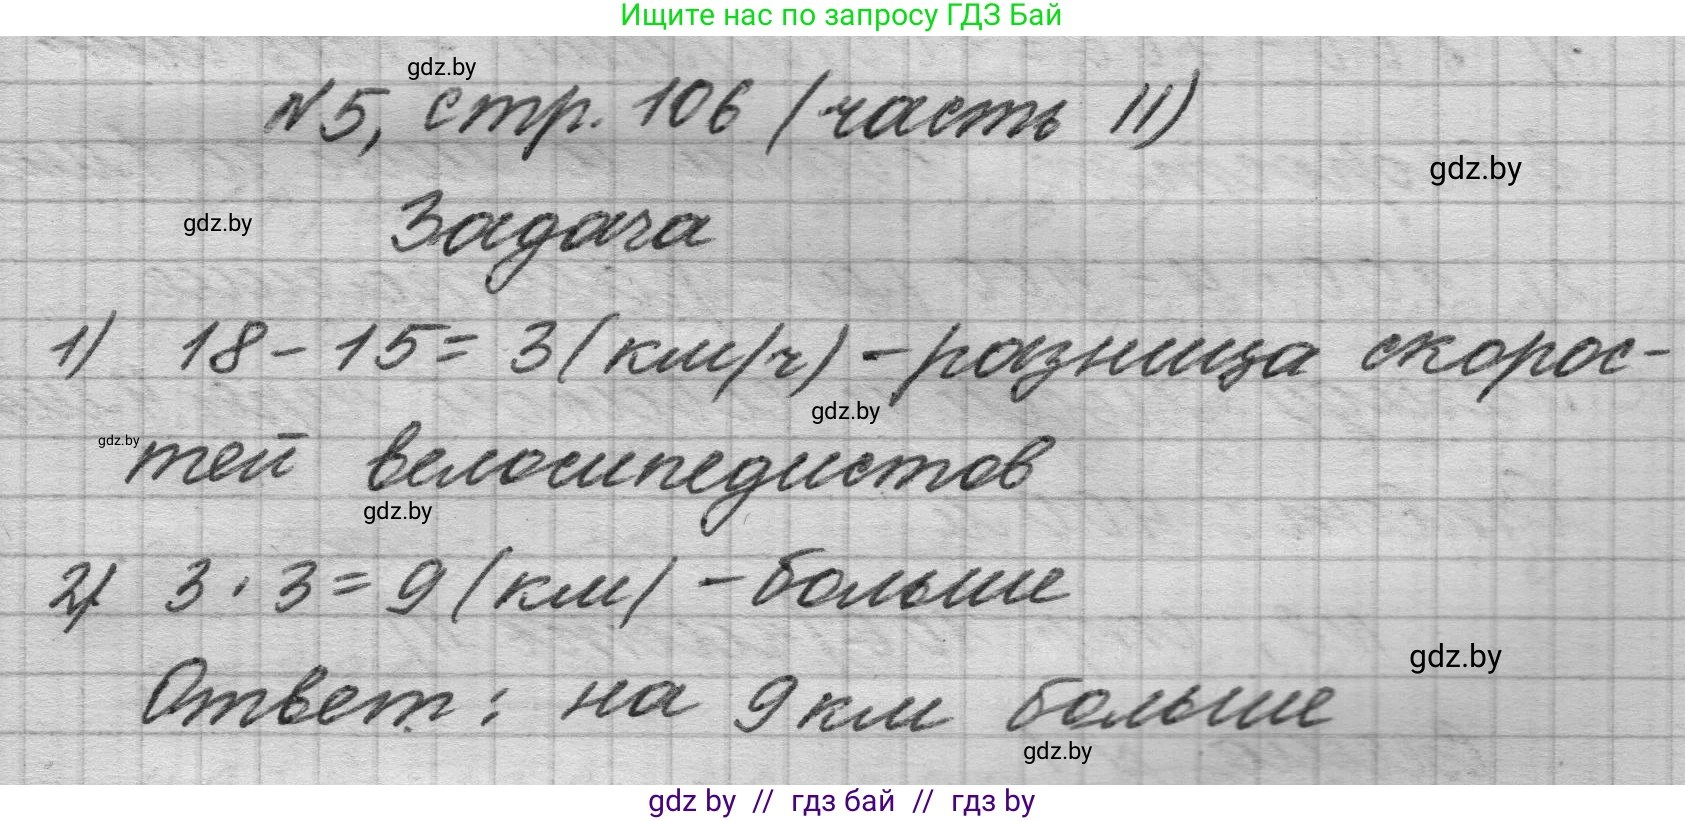 Ищите нас по запросу ГДЗ Бай
gdz.by
№5, стр. 106 (часть II)
gdz.by
gdz.by
Задача
1) 18 - 15 = 3 (км/ч) - разница скорос-
gdz.by
gdz.by
тей велосипедистов
gdz.by
2) 3 · 3 = 9 (км) - больше
gdz.by
Ответ: на 9 км больше
gdz.by
gdz by // гдз бай // гдз by